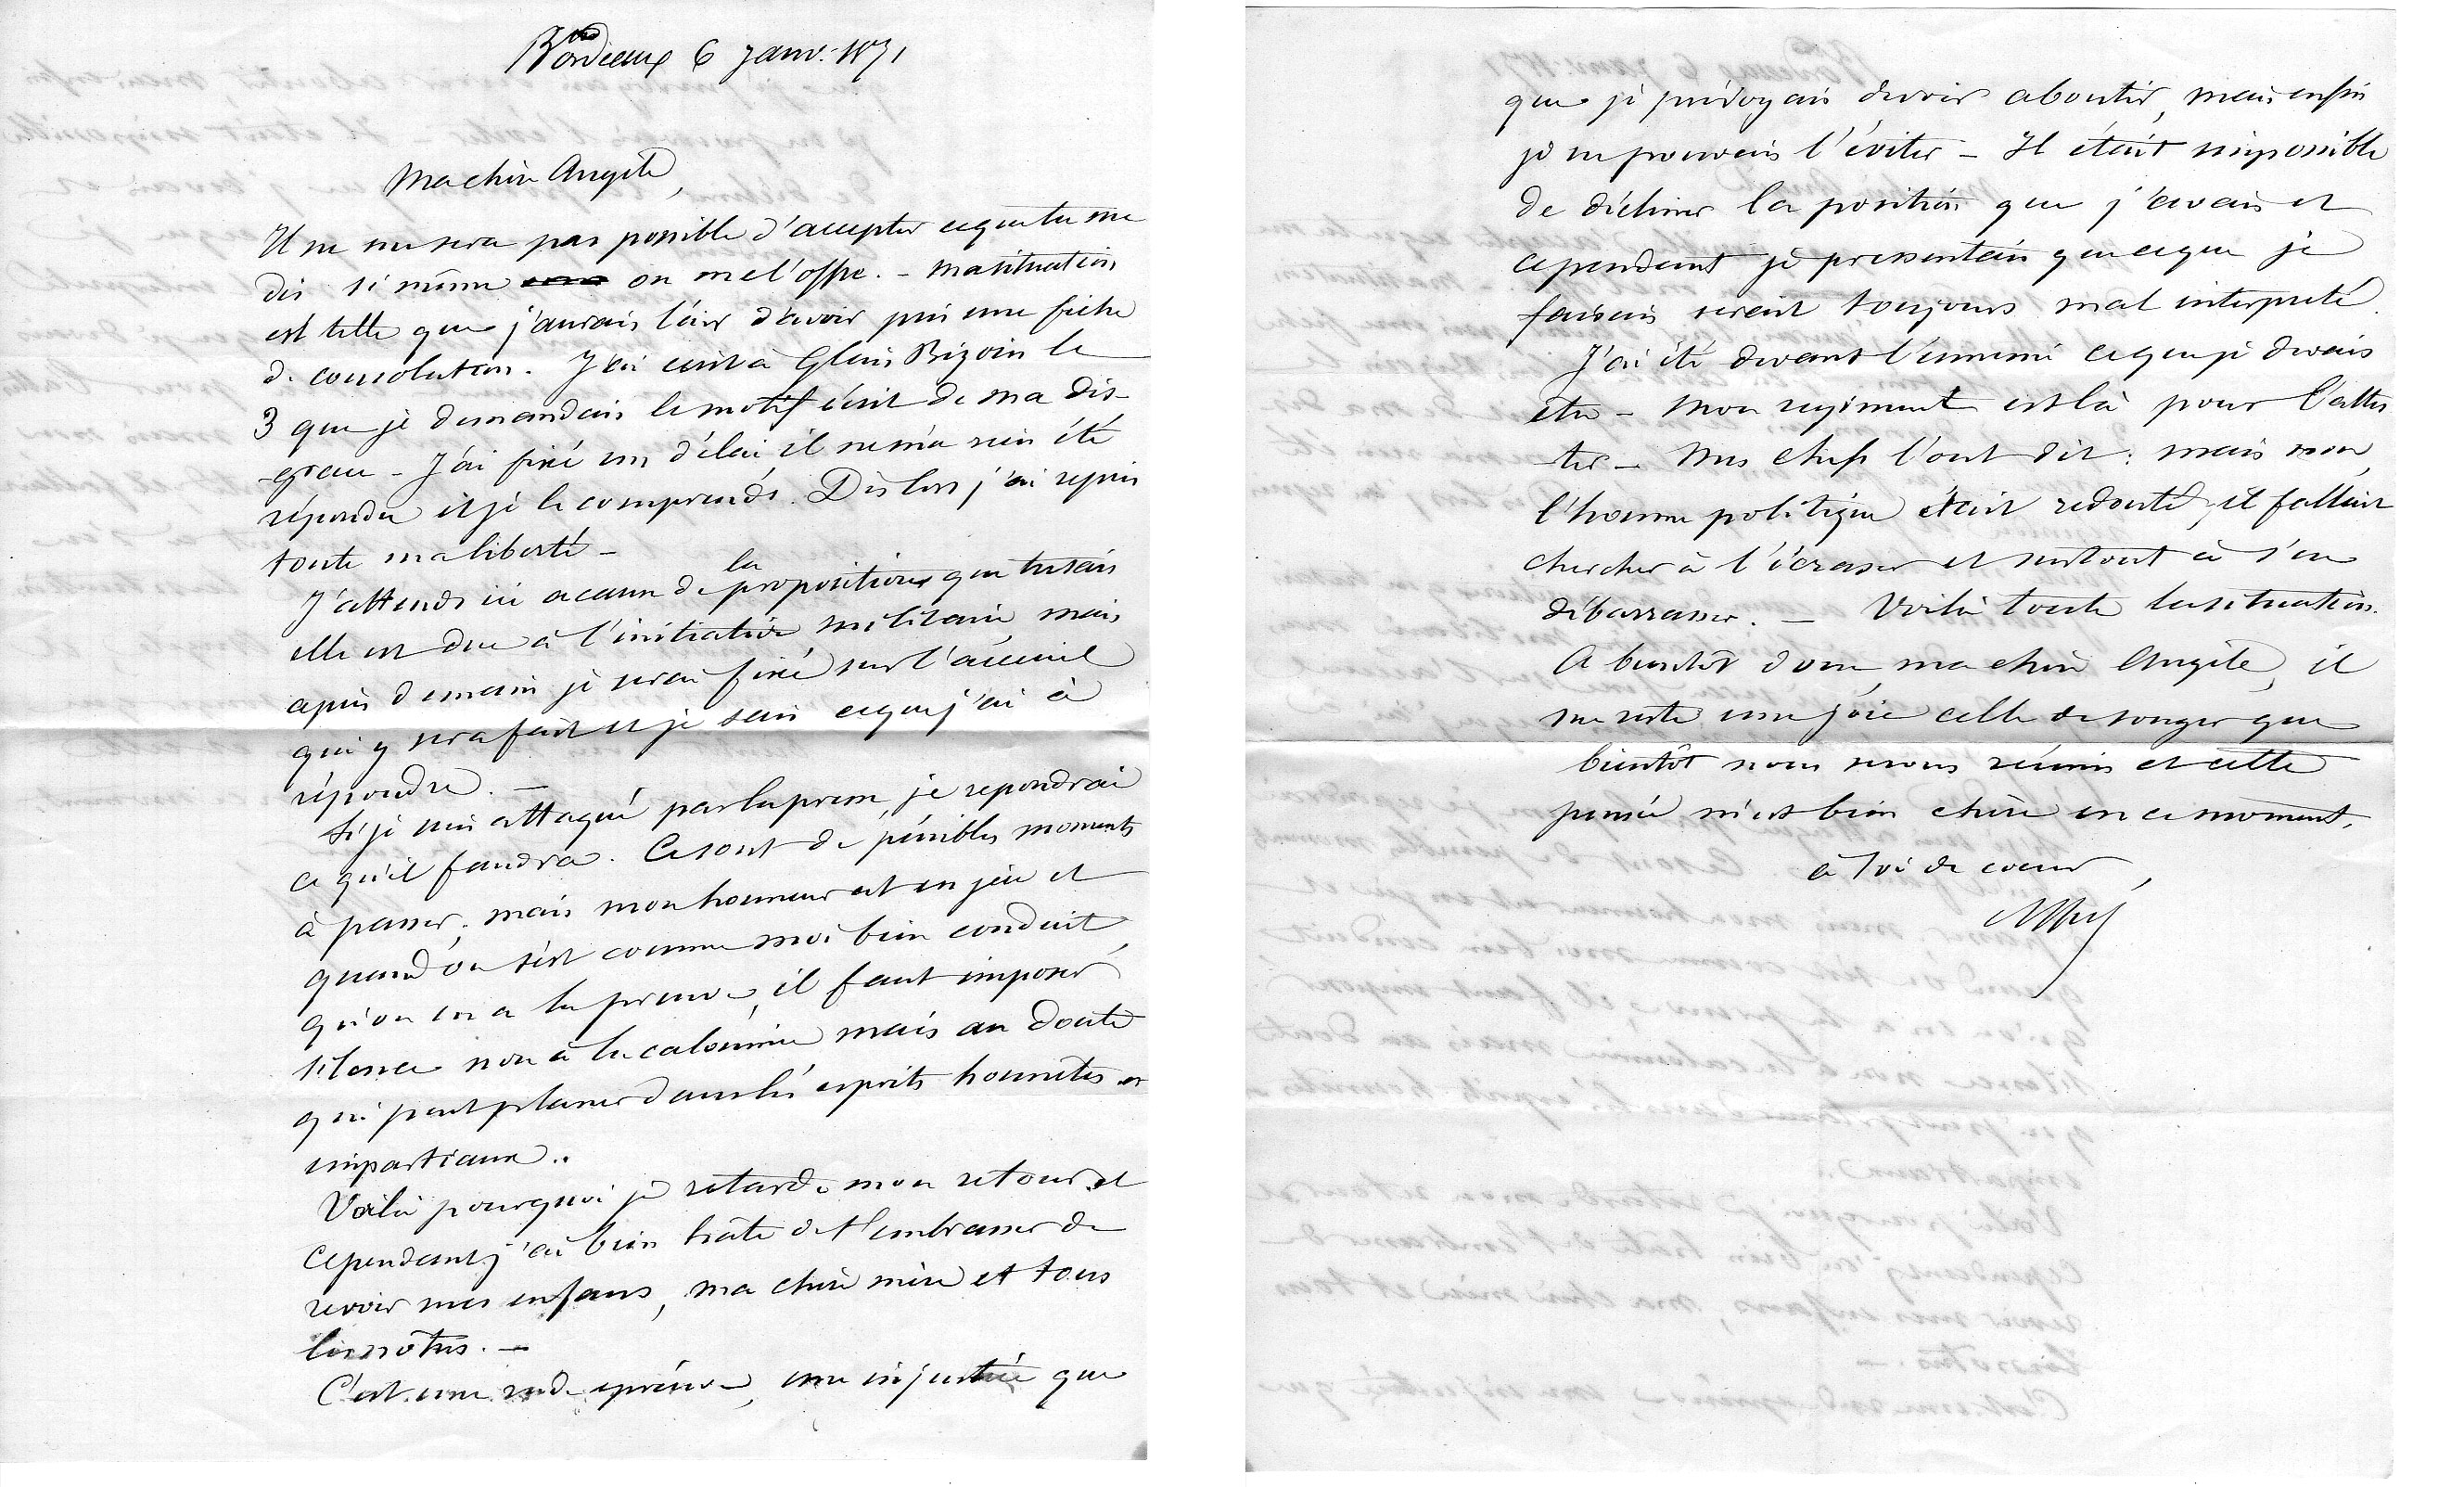 Bordeaux 6 janv. 1871
Ma chère Angèle,
Il ne me sera pas possible d'accepter ce que tu me
dis si même on me l'offre. - Ma situation
est telle que j'aurais l'air d'avoir pris une fiche
de consolation. J'ai écrit à Glais Bizoin le
3 que je demandais le motif écrit de ma dis-
grace - J'ai fixé un délai il ne m'a rien été
répondu et je le comprends. Dès lors j'ai repris
toute ma liberté -
J'attends ici a cause de la proposition que tu sais
elle est due à l'initiative militaire, mais
après demain je serai fixé sur l'accueil
qui y sera fait et je sais ce que j'ai à
répondre. -
Si je suis attaqué par la presse, je repondrai
ce qu'il faudra. Ce sont de pénibles moments
à passer, mais mon honneur est en jeu et
quand on s'est comme moi bien conduit,
qu'on en a la preuve, il faut imposer
silence non à la calomnie mais au doute
qui peut planer dans les esprits honnêtes et
impartiaux..
Voilà pourquoi je retarde mon retour et
cependant j'ai bien hâte de t'embrasser de
revoir mes enfans, ma chère mère et tous
les nôtres. -
C'est une rude épreuve, une injustice que
que je prévoyais devoir aboutir, mais enfin
je ne pouvais l'éviter - Il était impossible
de décliner la position que j'avais et
cependant je pressentais que ce que je
faisais serait toujours mal interprété.
J'ai été devant l'ennemi ce que je devais
être - Mon regiment est là pour l'attes
ter - Mes chefs l'ont dit : mais non,
l'homme politique était redouté, il fallait
chercher à l'écraser et surtout à s'en
débarrasser. - Voilà toute la situation.
A bientôt donc, ma chère Angèle, il
me reste une joie celle de songer que
bientôt nous serons réunis et cette
pensée m'est bien chère en ce moment.
à toi de coeur,